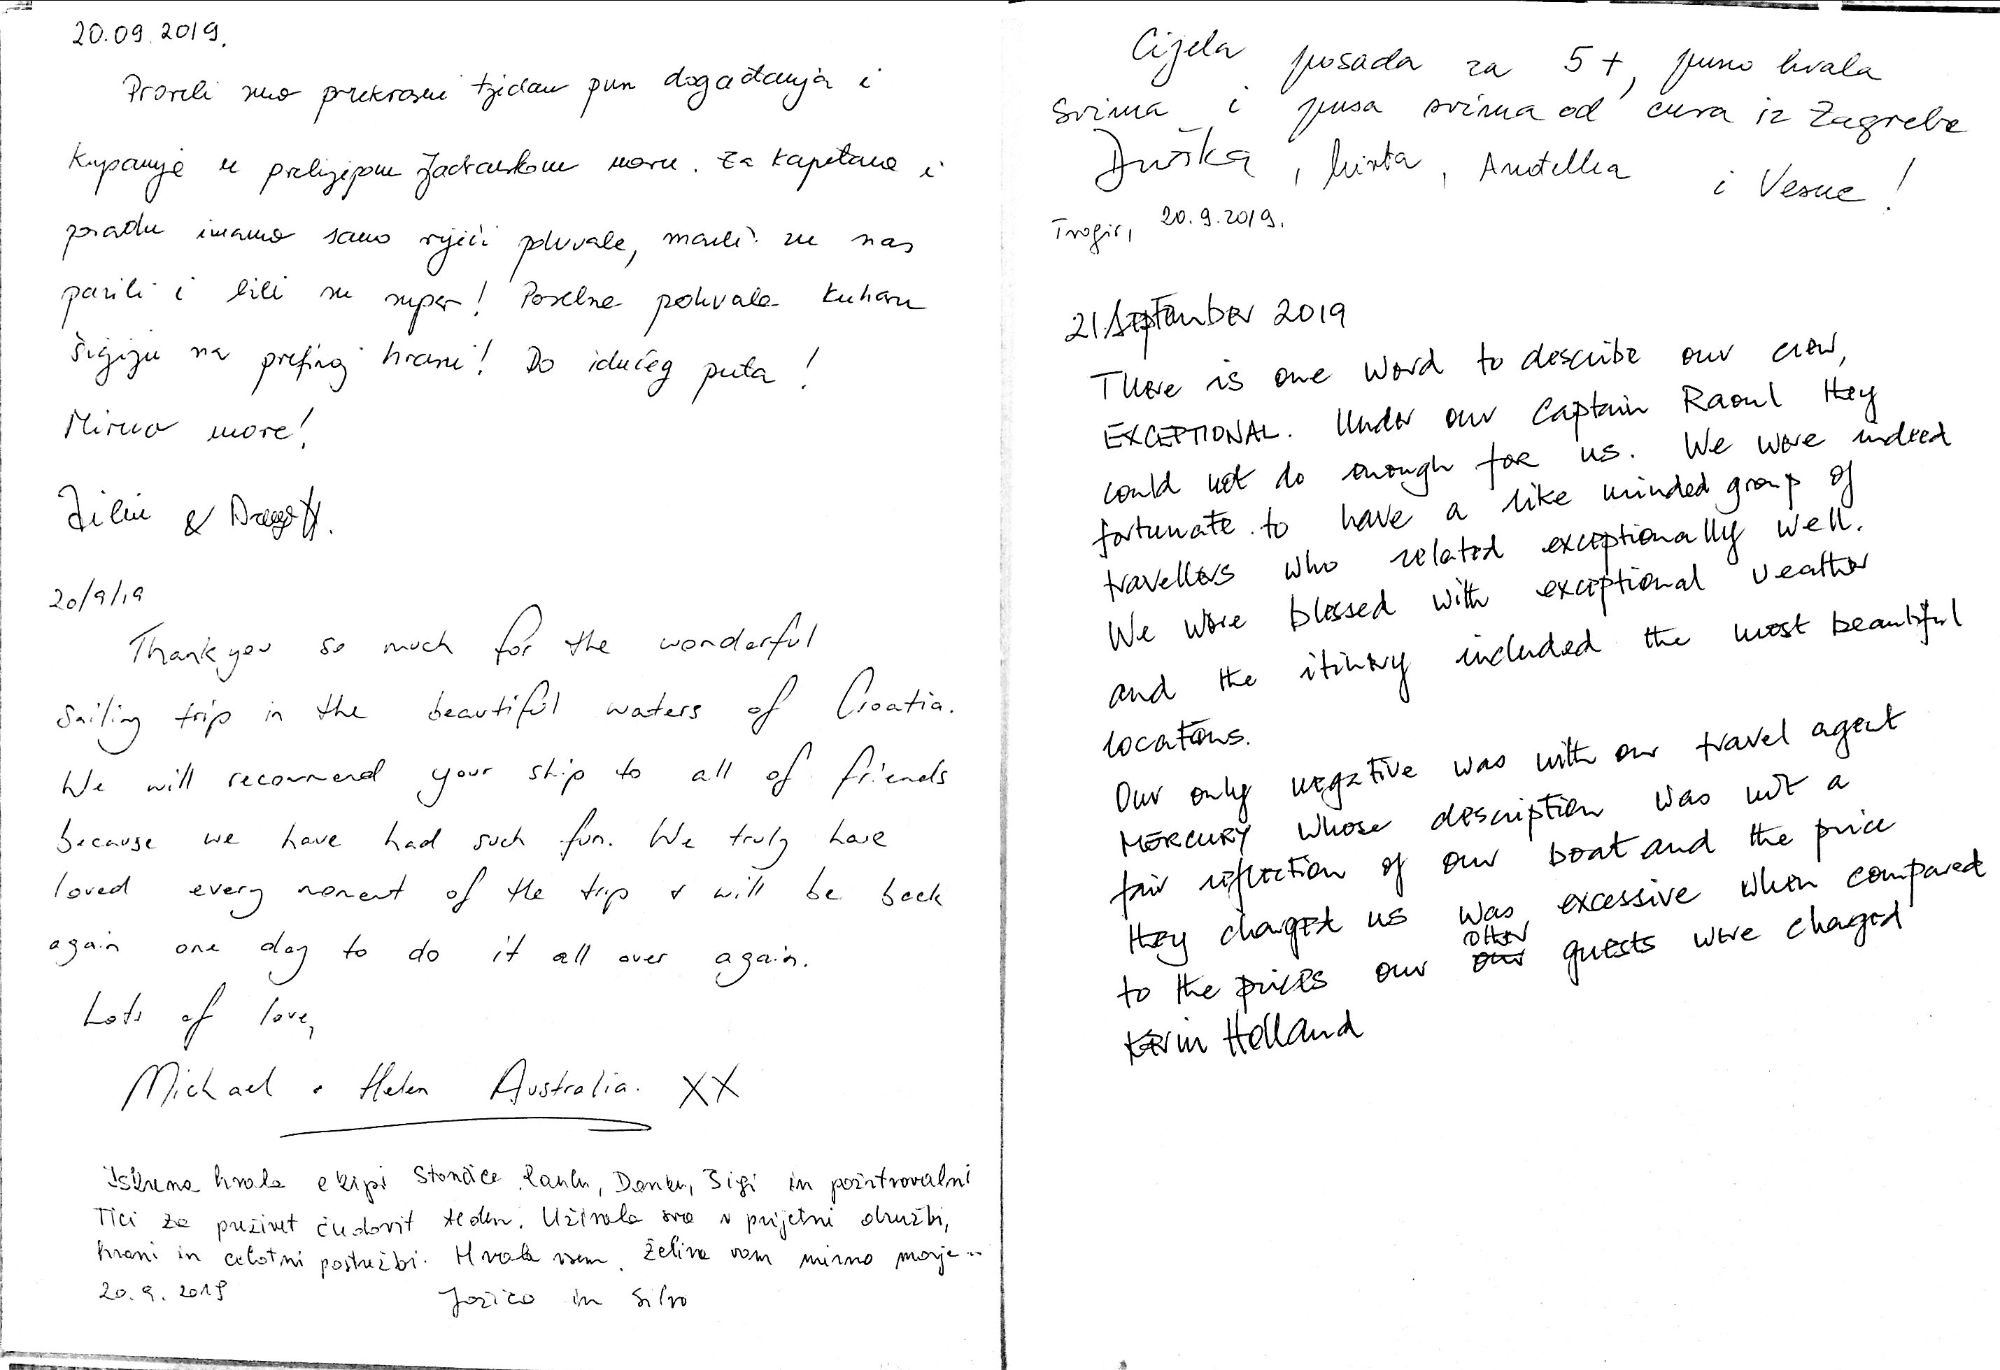 20.09.2019.
Proveli smo prekrasni tjedan pun događanja i
kupanja u prelijepom Jadranskom moru. Za kapetana i
posadu imamo samo riječi pohvale, mazili su nas
pazili i bili su super! Posebna pohvala kuharu
Šigiju na prefinoj hrani! Do idućeg puta!
Mirno more!
&
20/9/19
Thank you so much for the wonderful
sailing trip in the beautiful waters of Croatia.
We will recommend your ship to all of friends
because we have had such fun. We truly have
loved every moment of the trip & will be back
again one day to do it all over again.
Lots of love,
Michael & Helen Australia. XX
Iskrena hvala ekipi Stončice Raulu, Denku, Šigi in požrtvovalni
Tici za preživet čudovit teden. Uživala sva v prijetni družbi,
hrani in celotni postrežbi. Hvala vsem. Želiva vam mirno morje...
20.9.2019
Jožica in Silvo
Cijela posada za 5+, puno hvala
svima i pusa svima od cura iz Zagreba
Duška, Anđelka i Vesne!
Trogir, 20.9.2019.
21 September 2019
There is one word to describe our crew,
EXCEPTIONAL. Under our Captain Raoul they
could not do enough for us. We were indeed
fortunate to have a like minded group of
travellers who related exceptionally well.
We were blessed with exceptional weather
and the itinery included the most beautiful
locations.
Our only negative was with our travel agent
MERCURY whose description was not a
fair reflection of our boat and the price
they charged us was excessive when compared
to the prices our other guests were charged
Kevin Holland